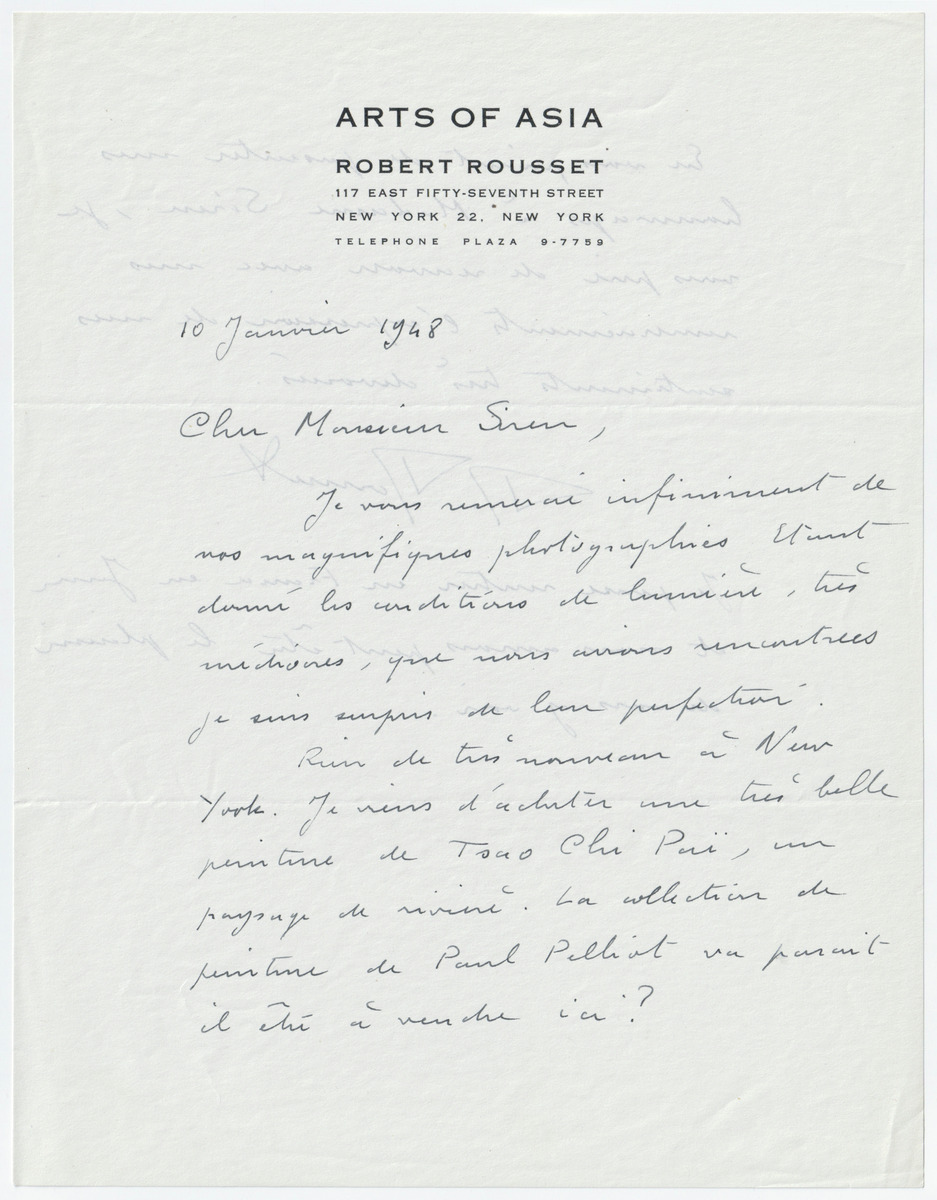 ARTS OF ASIA
ROBERT ROUSSET
117 EAST FIFTY-SEVENTH STREET
NEW YORK 22, NEW YORK
TELEPHONE PLAZA 9-7759
10 Janvier 1948
Cher Monsieur Siren,
Je vous remercie infiniment de
vos magnifiques photographies Etant
donné les conditions de lumière, très
médiocres, que nous avions rencontrées
je suis surpris de leur perfection.
Rien de très nouveau à New
York. Je viens d'acheter une très belle
peinture de Tsao Chi Paï, un
paysage de rivière. La collection de
peinture de Paul Pelliot va parait
il être à vendre ici?